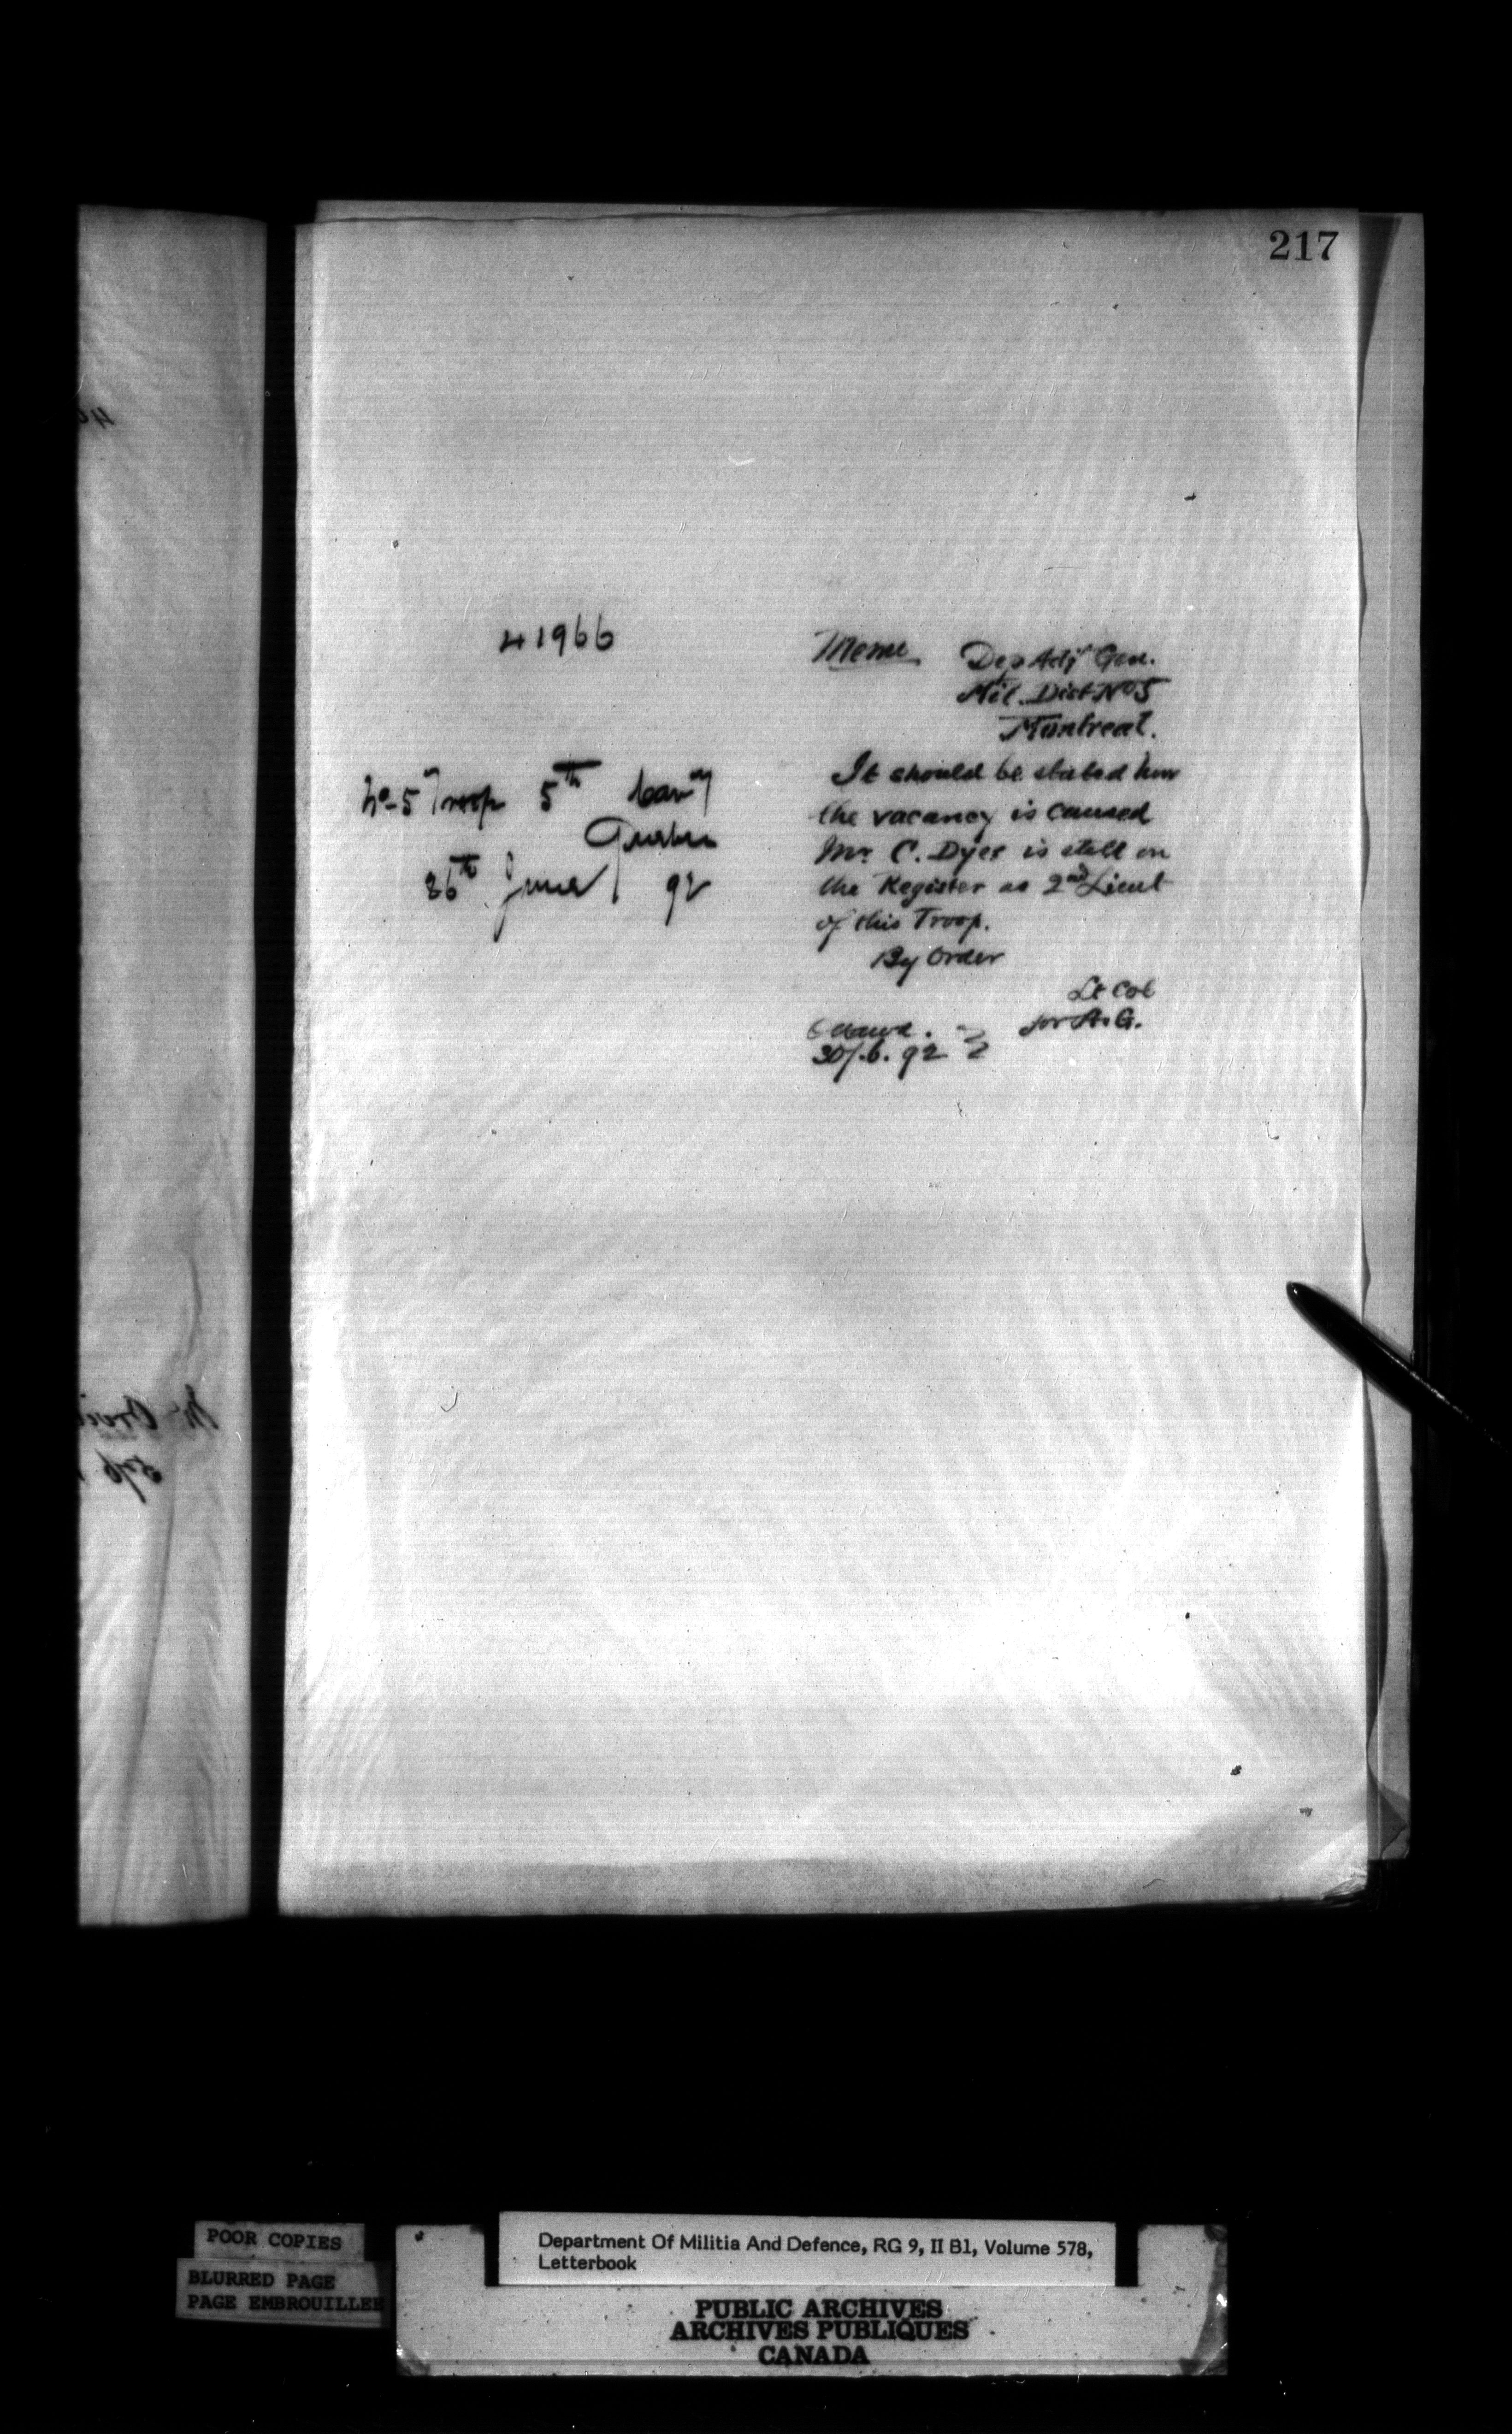 217
41966
No 5 Troop 5th Cavy
Quebec
26th June 92
Memo Dep Adjt Gen.
Mil. Dist No 5
Montreal.
It should be stated how
the vacancy is caused
Mr. C. Dyer is still on
the Register as 2nd Lieut
of this Troop.
By Order
Lt Col
for A. G.
Ottawa.
30/.6.92
POOR COPIES
BLURRED PAGE
PAGE EMBROUILLEE
Department Of Militia And Defence, RG 9, II B1, Volume 578,
Letterbook
PUBLIC ARCHIVES
ARCHIVES PUBLIQUES
CANADA